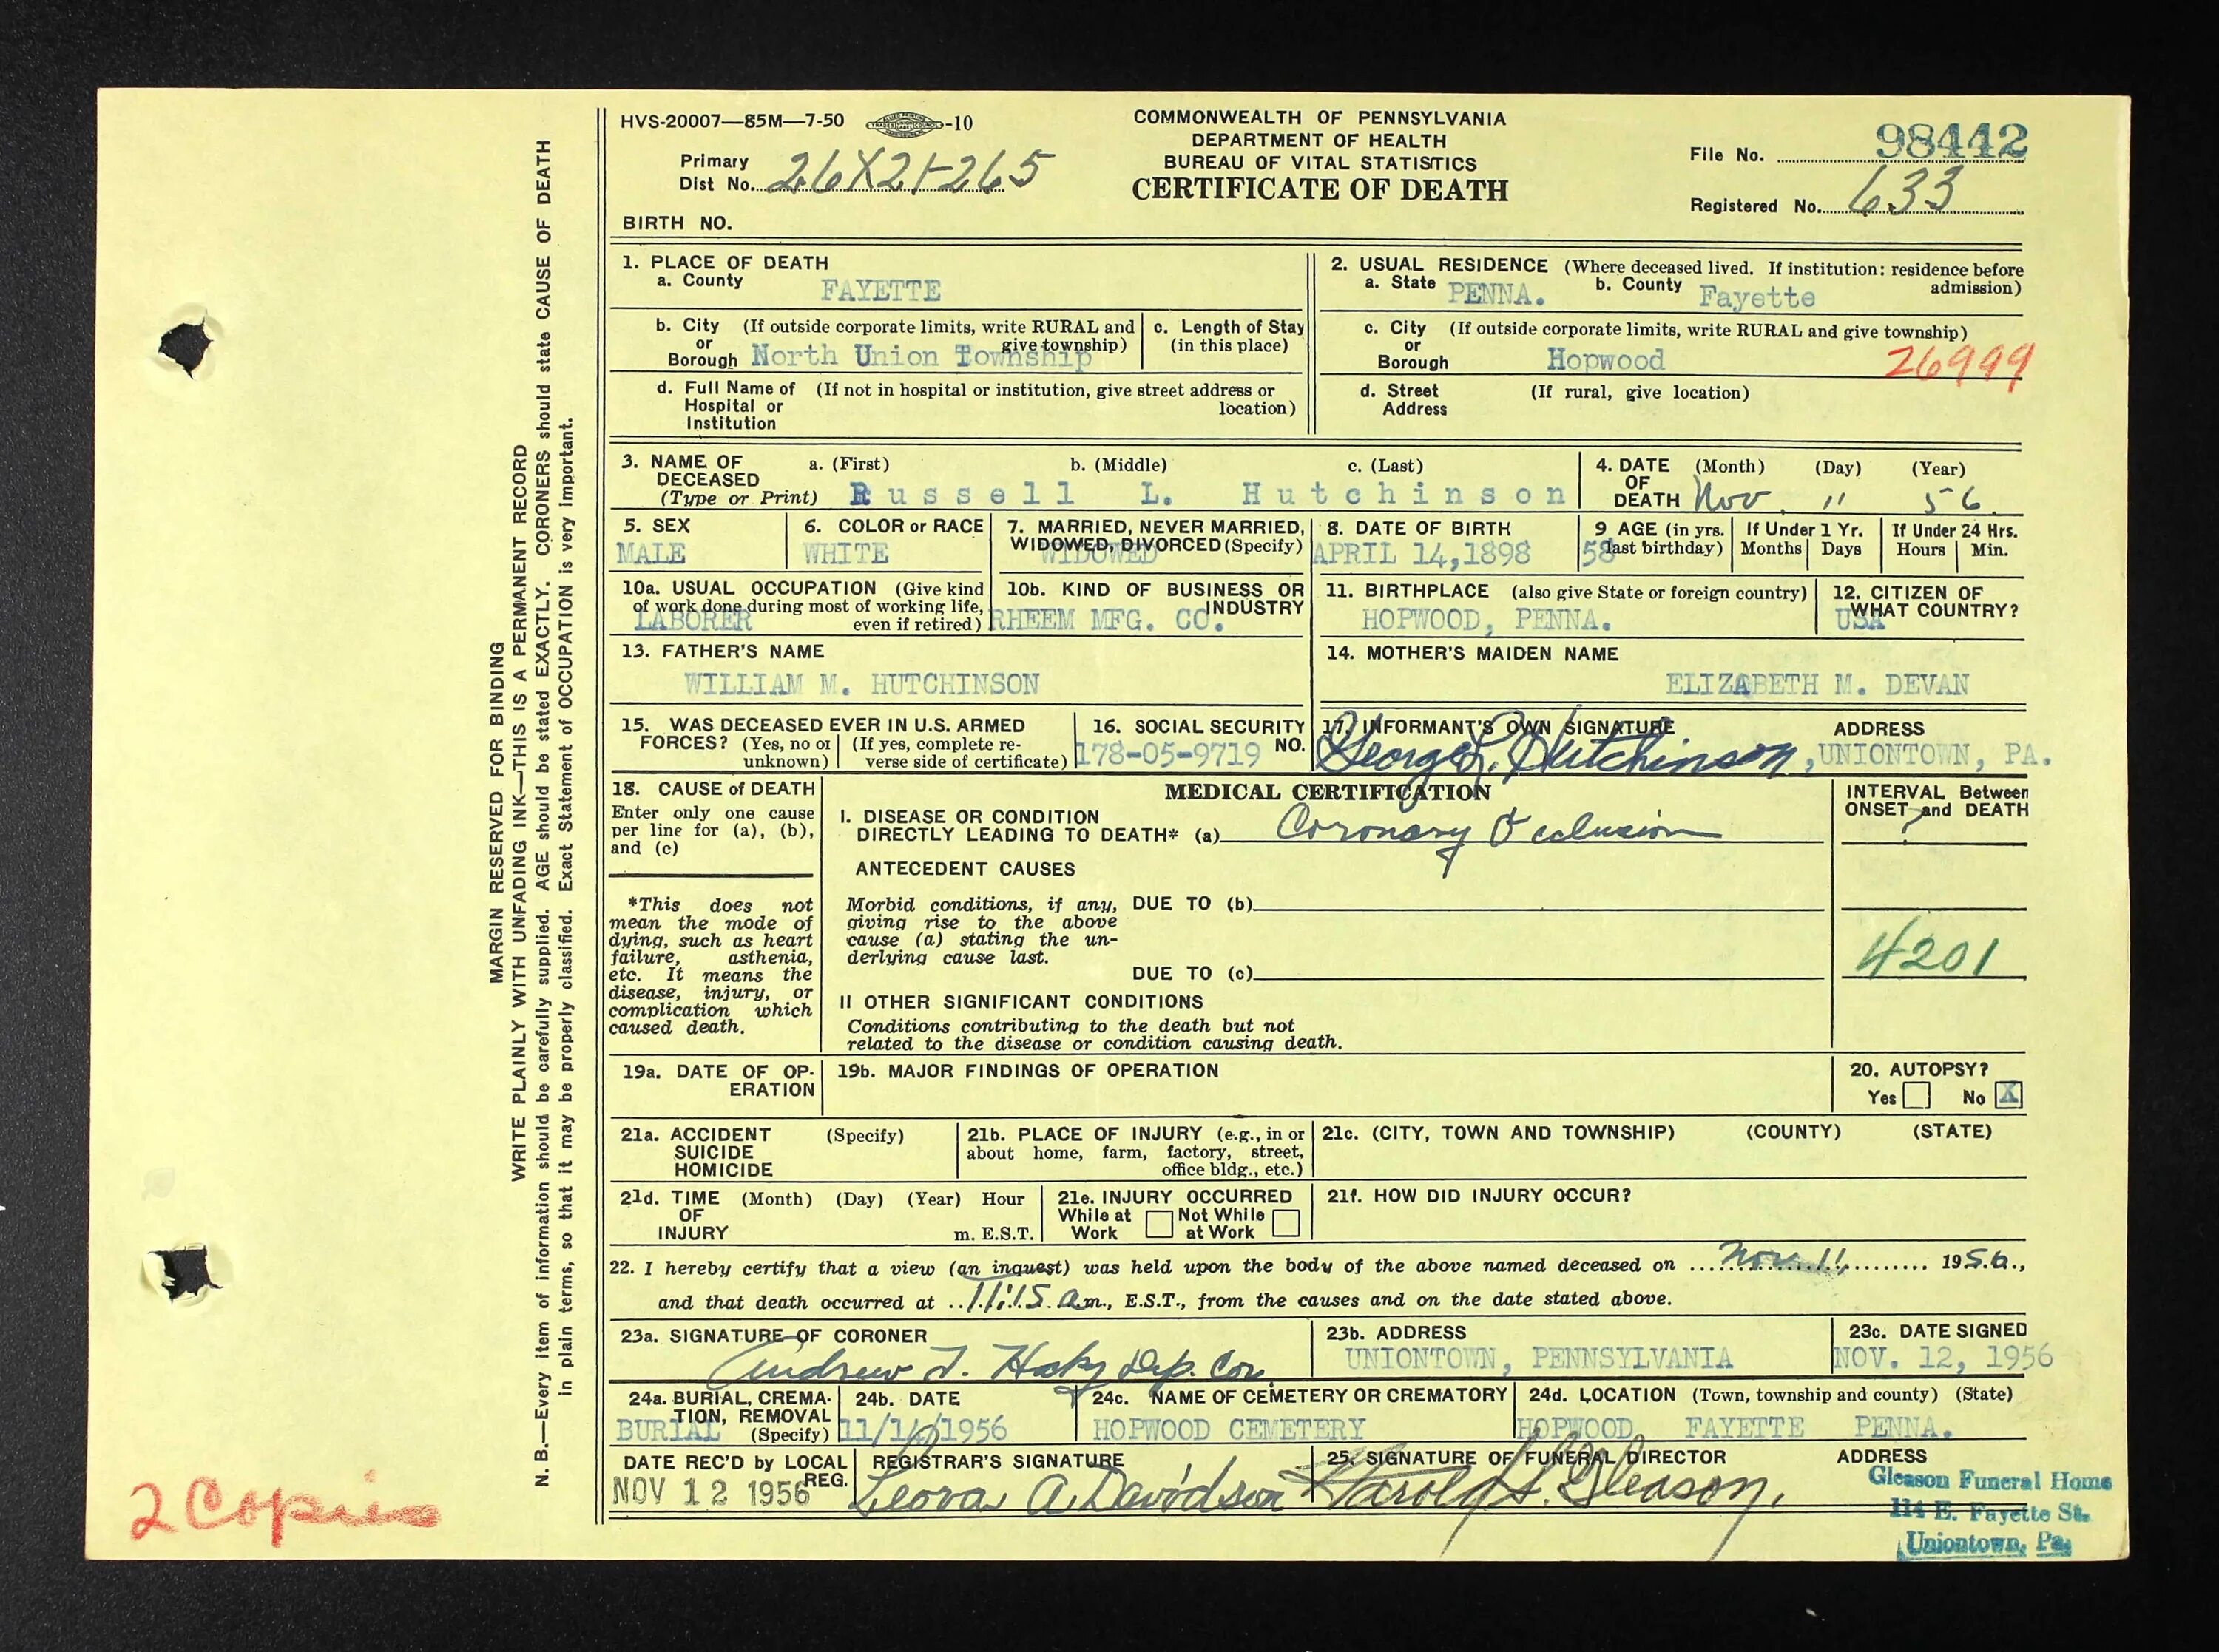 HVS-20007—85M—7-50 -10
COMMONWEALTH OF PENNSYLVANIA
DEPARTMENT OF HEALTH
BUREAU OF VITAL STATISTICS
CERTIFICATE OF DEATH
Primary
Dist No. 26X21-265
File No. 98442
Registered No. 633
BIRTH NO.
1. PLACE OF DEATH
a. County FAYETTE
b. City (If outside corporate limits, write RURAL and
or give township)
Borough North Union Township
c. Length of Stay
(in this place)
d. Full Name of (If not in hospital or institution, give street address or
Hospital or location)
Institution
2. USUAL RESIDENCE (Where deceased lived. If institution: residence before
admission)
a. State PENNA. b. County Fayette
c. City (If outside corporate limits, write RURAL and give township)
or
Borough Hopwood 26999
d. Street (If rural, give location)
Address
3. NAME OF a. (First) b. (Middle) c. (Last)
DECEASED
(Type or Print) Russell L. Hutchinson
4. DATE (Month) (Day) (Year)
OF
DEATH Nov 11 56
5. SEX
MALE
6. COLOR or RACE
WHITE
7. MARRIED, NEVER MARRIED,
WIDOWED, DIVORCED (Specify)
WIDOWED
8. DATE OF BIRTH
APRIL 14,1898
9 AGE (in yrs.
last birthday)
58
If Under 1 Yr.
Months Days
If Under 24 Hrs.
Hours Min.
10a. USUAL OCCUPATION (Give kind
of work done during most of working life,
even if retired)
LABORER
10b. KIND OF BUSINESS OR
INDUSTRY
RHEEM MFG. CO.
11. BIRTHPLACE (also give State or foreign country)
HOPWOOD, PENNA.
12. CITIZEN OF
WHAT COUNTRY?
USA
13. FATHER'S NAME
WILLIAM M. HUTCHINSON
14. MOTHER'S MAIDEN NAME
ELIZABETH M. DEVAN
15. WAS DECEASED EVER IN U.S. ARMED
FORCES? (Yes, no or (If yes, complete re-
unknown) verse side of certificate)
16. SOCIAL SECURITY
NO.
178-05-9719
17. INFORMANT'S OWN SIGNATURE ADDRESS
George L. Hutchinson, UNIONTOWN, PA.
18. CAUSE of DEATH
Enter only one cause
per line for (a), (b),
and (c)
*This does not
mean the mode of
dying, such as heart
failure, asthenia,
etc. It means the
disease, injury, or
complication which
caused death.
MEDICAL CERTIFICATION
I. DISEASE OR CONDITION
DIRECTLY LEADING TO DEATH* (a) Coronary Occlusion
ANTECEDENT CAUSES
Morbid conditions, if any, DUE TO (b)
giving rise to the above
cause (a) stating the un-
derlying cause last.
DUE TO (c)
II OTHER SIGNIFICANT CONDITIONS
Conditions contributing to the death but not
related to the disease or condition causing death.
INTERVAL Between
ONSET and DEATH
?
4201
19a. DATE OF OP-
ERATION
19b. MAJOR FINDINGS OF OPERATION
20. AUTOPSY?
Yes No X
21a. ACCIDENT (Specify)
SUICIDE
HOMICIDE
21b. PLACE OF INJURY (e.g., in or
about home, farm, factory, street,
office bldg., etc.)
21c. (CITY, TOWN AND TOWNSHIP) (COUNTY) (STATE)
21d. TIME (Month) (Day) (Year) Hour
OF
INJURY m. E.S.T.
21e. INJURY OCCURRED
While at Not While
Work at Work
21f. HOW DID INJURY OCCUR?
22. I hereby certify that a view (an inquest) was held upon the body of the above named deceased on Nov. 11, 1956,
and that death occurred at 11:15 a.m., E.S.T., from the causes and on the date stated above.
23a. SIGNATURE OF CORONER
Andrew T. Haky Dep. Cor.
23b. ADDRESS
UNIONTOWN, PENNSYLVANIA
23c. DATE SIGNED
NOV. 12, 1956
24a. BURIAL, CREMA-
TION, REMOVAL
(Specify)
BURIAL
24b. DATE
11/14/1956
24c. NAME OF CEMETERY OR CREMATORY
HOPWOOD CEMETERY
24d. LOCATION (Town, township and county) (State)
HOPWOOD, FAYETTE PENNA.
DATE REC'D by LOCAL
REG.
NOV 12 1956
REGISTRAR'S SIGNATURE
Leora A. Davidson
25. SIGNATURE OF FUNERAL DIRECTOR ADDRESS
Harold S. Gleason.
Gleason Funeral Home
114 E. Fayette St.
Uniontown, Pa.
MARGIN RESERVED FOR BINDING
WRITE PLAINLY WITH UNFADING INK—THIS IS A PERMANENT RECORD
N. B.—Every item of information should be carefully supplied. AGE should be stated EXACTLY. CORONERS should state CAUSE OF DEATH
in plain terms, so that it may be properly classified. Exact Statement of OCCUPATION is very important.
2 Copies